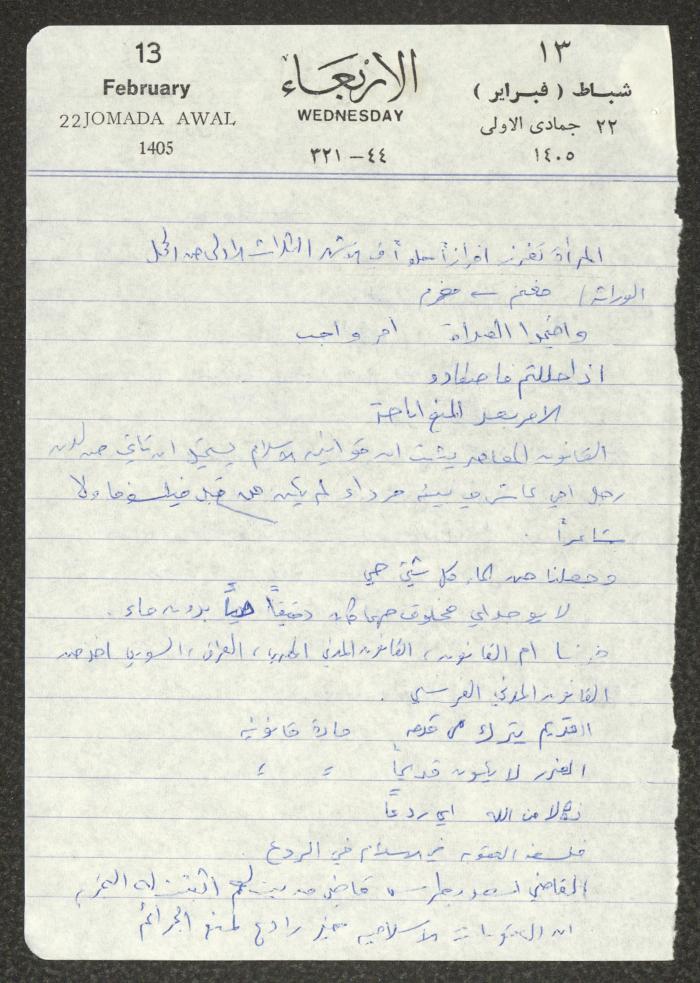 13
February
22 JOMADA AWAL
1405
الاربعاء
WEDNESDAY
٤٤ – ٣٢١
١٣
شباط ( فبراير )
٢٢ جمادى الاولى
١٤٠٥
المرأة تفرز افرازاً في الاشهر الثلاث الاولى من الحمل
الوراثة / مغنم ← مغرم
واقيموا الصلاة امر واجب
اذا حللتم فاصطادوا
الامر بعد المنع اباحة
القانون المعاصر يثبت ان قوانين الاسلام يستحيل ان تأتي من لدن
رجل امي عاش في بيئة جرداء لم يكن من قبل فيلسوفا ولا
شاعراً .
وجعلنا من الماء كل شيئ حي
لا يوجد اي مخلوق مهما كان دقيقاً حياً بدون ماء .
فرنسا ام القانون ، القانون المدني المصري ، العراقي ، السوري اخذ من
القانون المدني الفرنسي .
القديم يترك على قدمه مادة قانونية
الضرر لا يكون قديماً " "
نكالا من الله اي ردعاً
فلسفة العقوبة في الاسلام هي الردع
القاضي قاضي اثبتت له التجربة
ان العقوبات الاسلامية خير رادع لمنع الجرائم